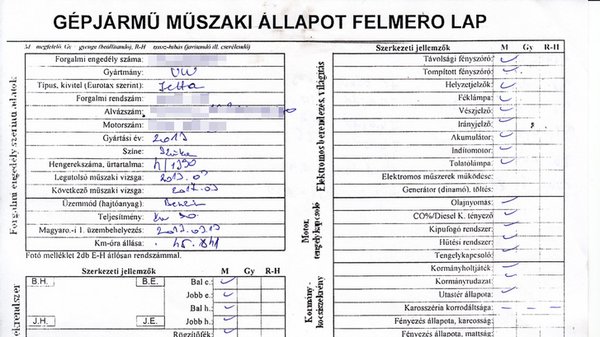 GÉPJÁRMŰ MŰSZAKI ÁLLAPOT FELMERO LAP
M megfelelő, Gy gyenge (beállítandó), R-H rossz-hibás (javítandó ill. cserélendő)
Forgalmi engedély szerinti adatok:
Forgalmi engedély száma:
Gyártmány: VW
Típus, kivitel (Eurotax szerint): Jetta
Forgalmi rendszám:
Alvázszám:
Motorszám:
Gyártási év: 2013
Színe: Szürke
Hengerekszáma, űrtartalma: 4/1390
Legutolsó műszaki vizsga: 2013.03
Következő műszaki vizsga: 2017.03
Üzemmód (hajtóanyag): Benzin
Teljesítmény: Kw 90
Magyaro.-i 1. üzembehelyezés: 2013.03.13
Km-óra állása:
Fotó melléklet 2db E-H átlósan rendszámmal.
Szerkezeti jellemzők M Gy R-H
B.H. B.E. Bal e.:
Jobb e.:
Bal h.:
J.H. J.E. Jobb h.:
Rögzítőfék
Szerkezeti jellemzők M Gy R-H
Elektromos berendezés, világítás
Távolsági fényszóró:
Tompított fényszóró:
Helyzetjelzők:
Féklámpa:
Vészjelző:
Irányjelző:
Akkumulátor:
Indítómotor:
Tolatólámpa:
Elektromos műszerek működése:
Generátor (dinamó), töltés:
Motor, tengelykapcsoló
Olajnyomás:
CO%/Diesel K. tényező
Kipufogó rendszer:
Hűtési rendszer:
Tengelykapcsoló:
Kormány-, kocsiszekrény
Kormányholtjáték:
Kormányrudazat:
Utastér állapota:
Karosszéria korrodáltsága:
Fényezés állapota, karcosság:
Fényezés állapota, mattság: